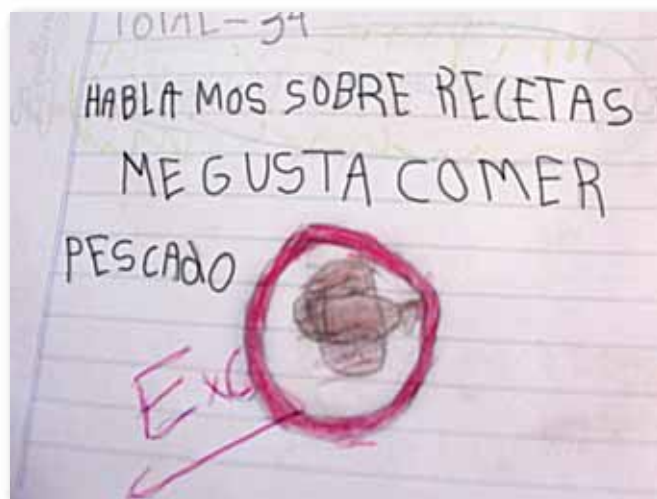 TOTAL-34
HABLAMOS SOBRE RECETAS
ME GUSTA COMER
PESCADO
Exc